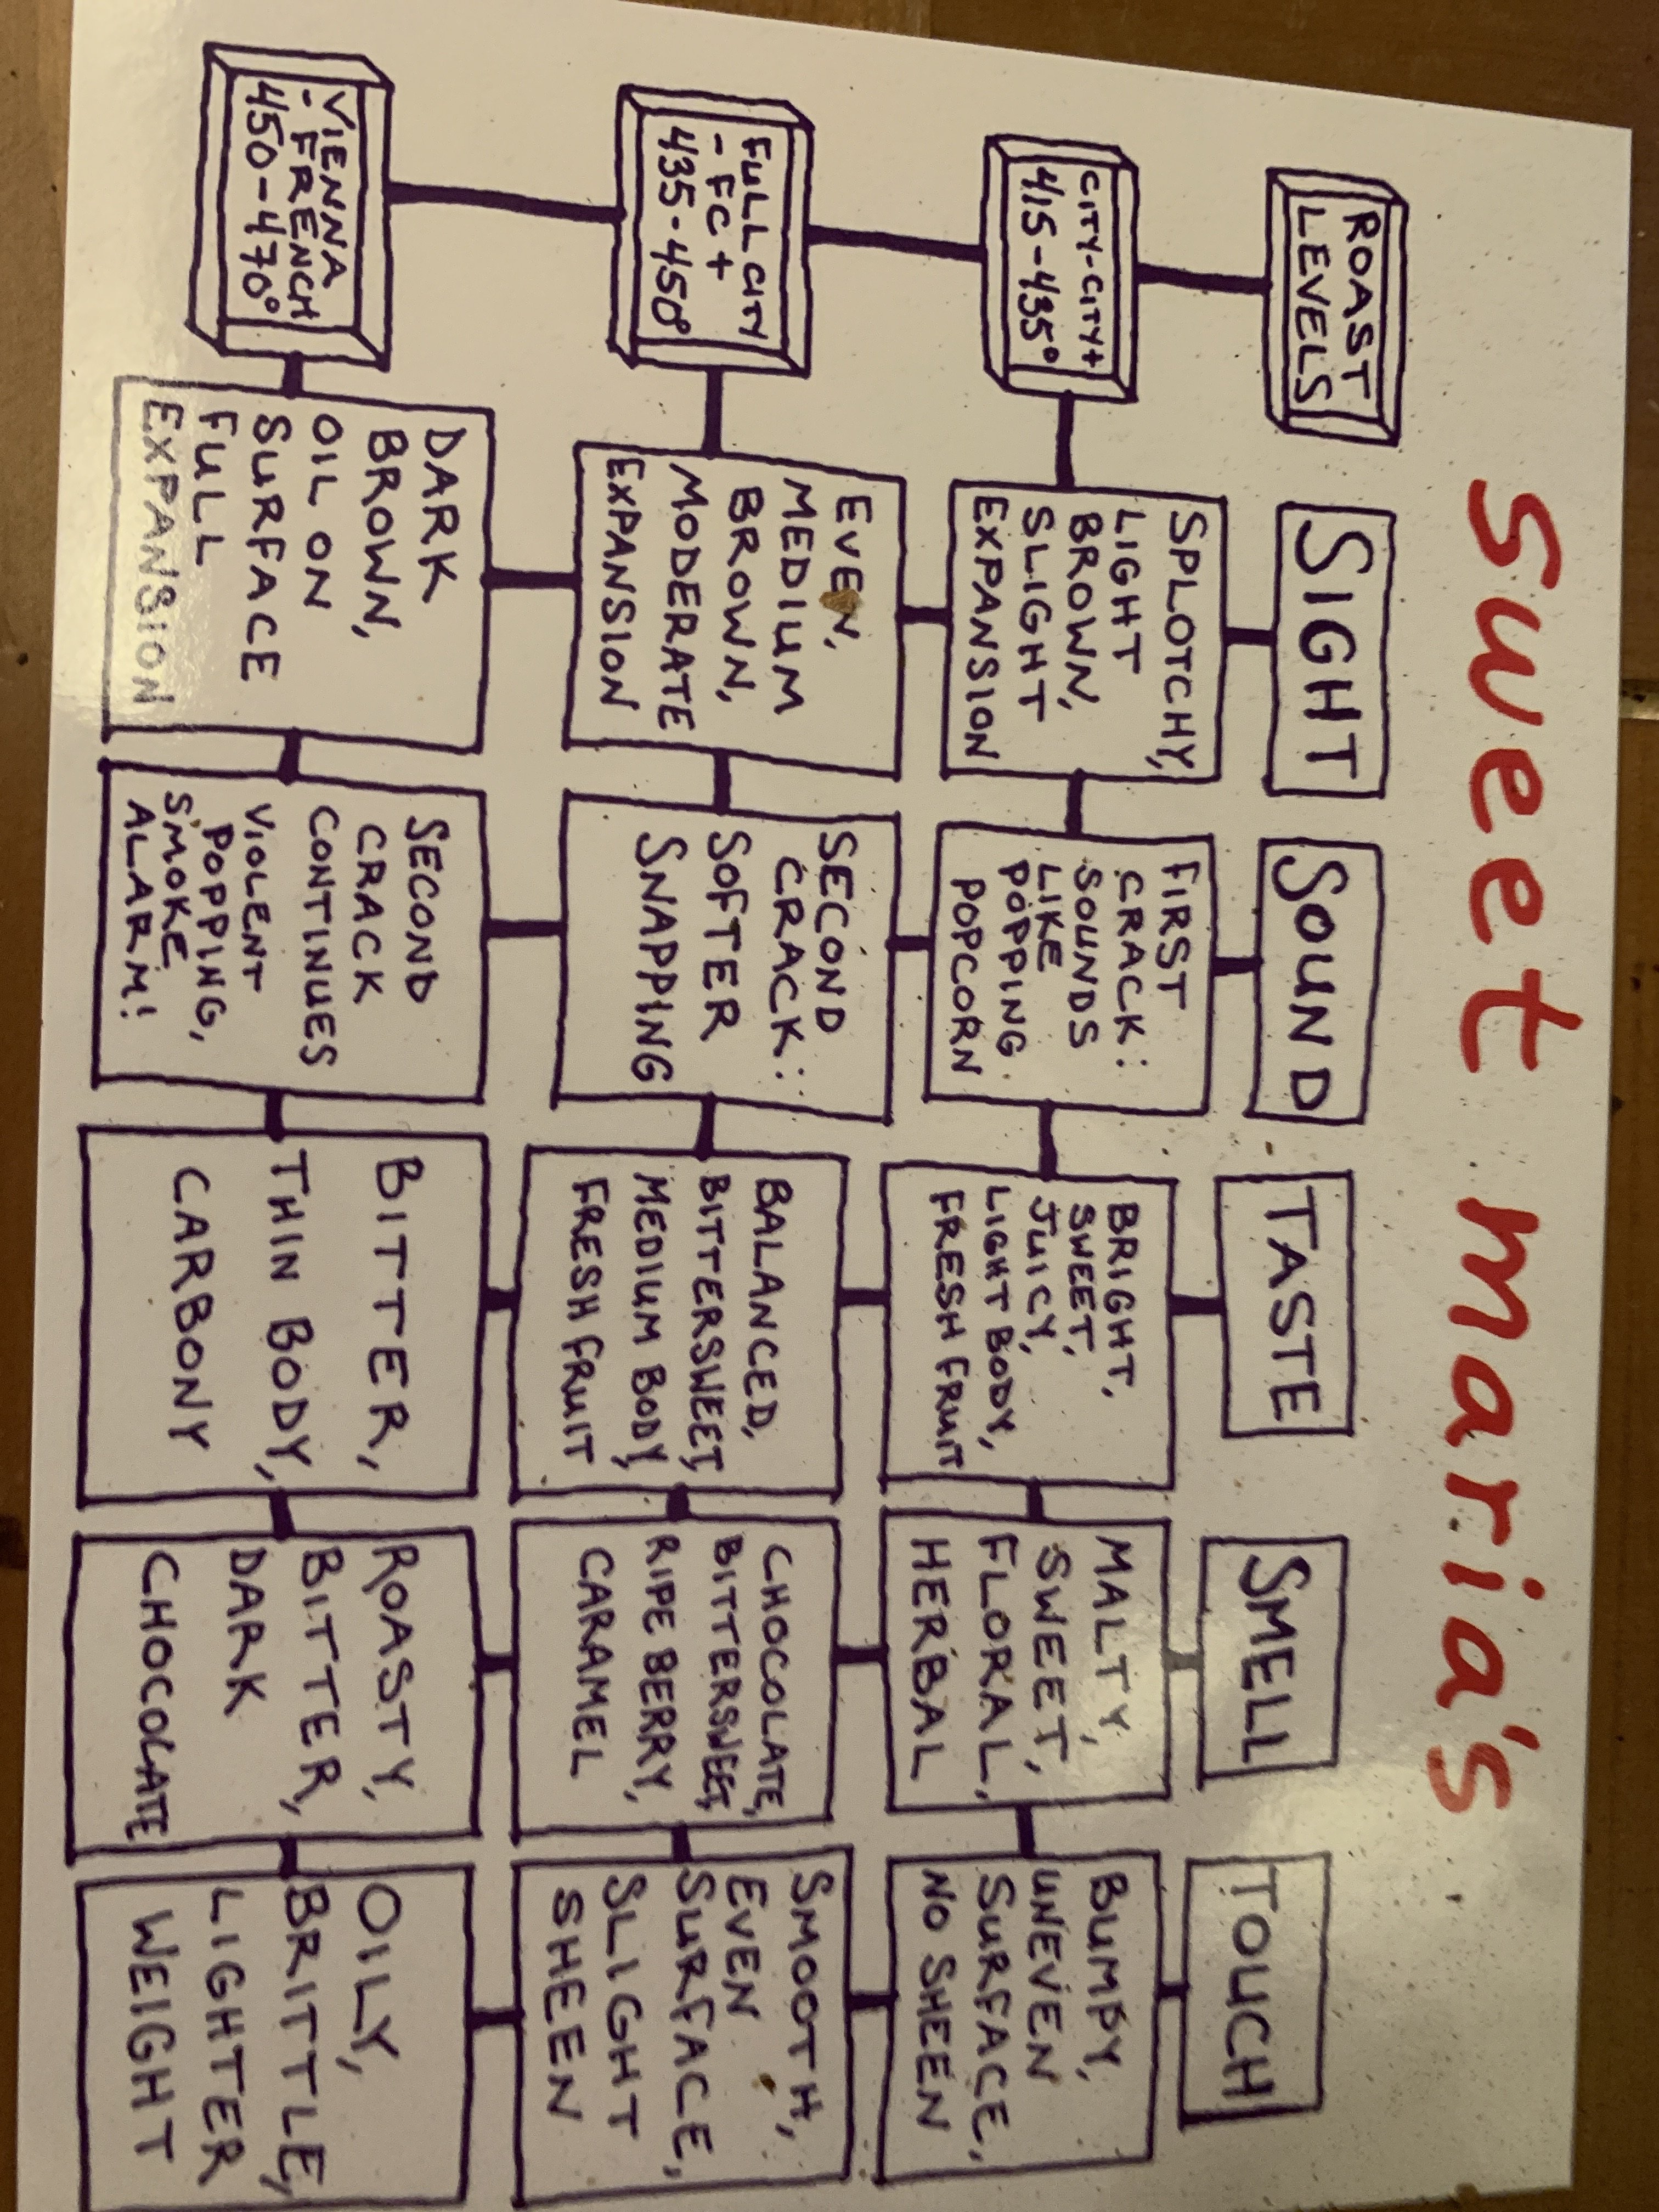 sweet maria's
ROAST
LEVELS
SIGHT
SOUND
TASTE
SMELL
TOUCH
CITY-CITY+
415-435°
SPLOTCHY,
LIGHT
BROWN,
SLIGHT
EXPANSION
FIRST
CRACK:
SOUNDS
LIKE
POPPING
POPCORN
BRIGHT,
SWEET,
JUICY,
LIGHT BODY,
FRESH FRUIT
MALTY,
SWEET,
FLORAL,
HERBAL
BUMPY,
UNEVEN
SURFACE,
NO SHEEN
FULL CITY
- FC +
435-450°
EVEN,
MEDIUM
BROWN,
MODERATE
EXPANSION
SECOND
CRACK:
SOFTER
SNAPPING
BALANCED,
BITTERSWEET,
MEDIUM BODY,
FRESH FRUIT
CHOCOLATE,
BITTERSWEET,
RIPE BERRY,
CARAMEL
SMOOTH,
EVEN
SURFACE,
SLIGHT
SHEEN
VIENNA
- FRENCH
450-470°
DARK
BROWN,
OIL ON
SURFACE
FULL
EXPANSION
SECOND
CRACK
CONTINUES
VIOLENT
POPPING,
SMOKE
ALARM!
BITTER,
THIN BODY,
CARBONY
ROASTY,
BITTER,
DARK
CHOCOLATE
OILY,
BRITTLE,
LIGHTER
WEIGHT